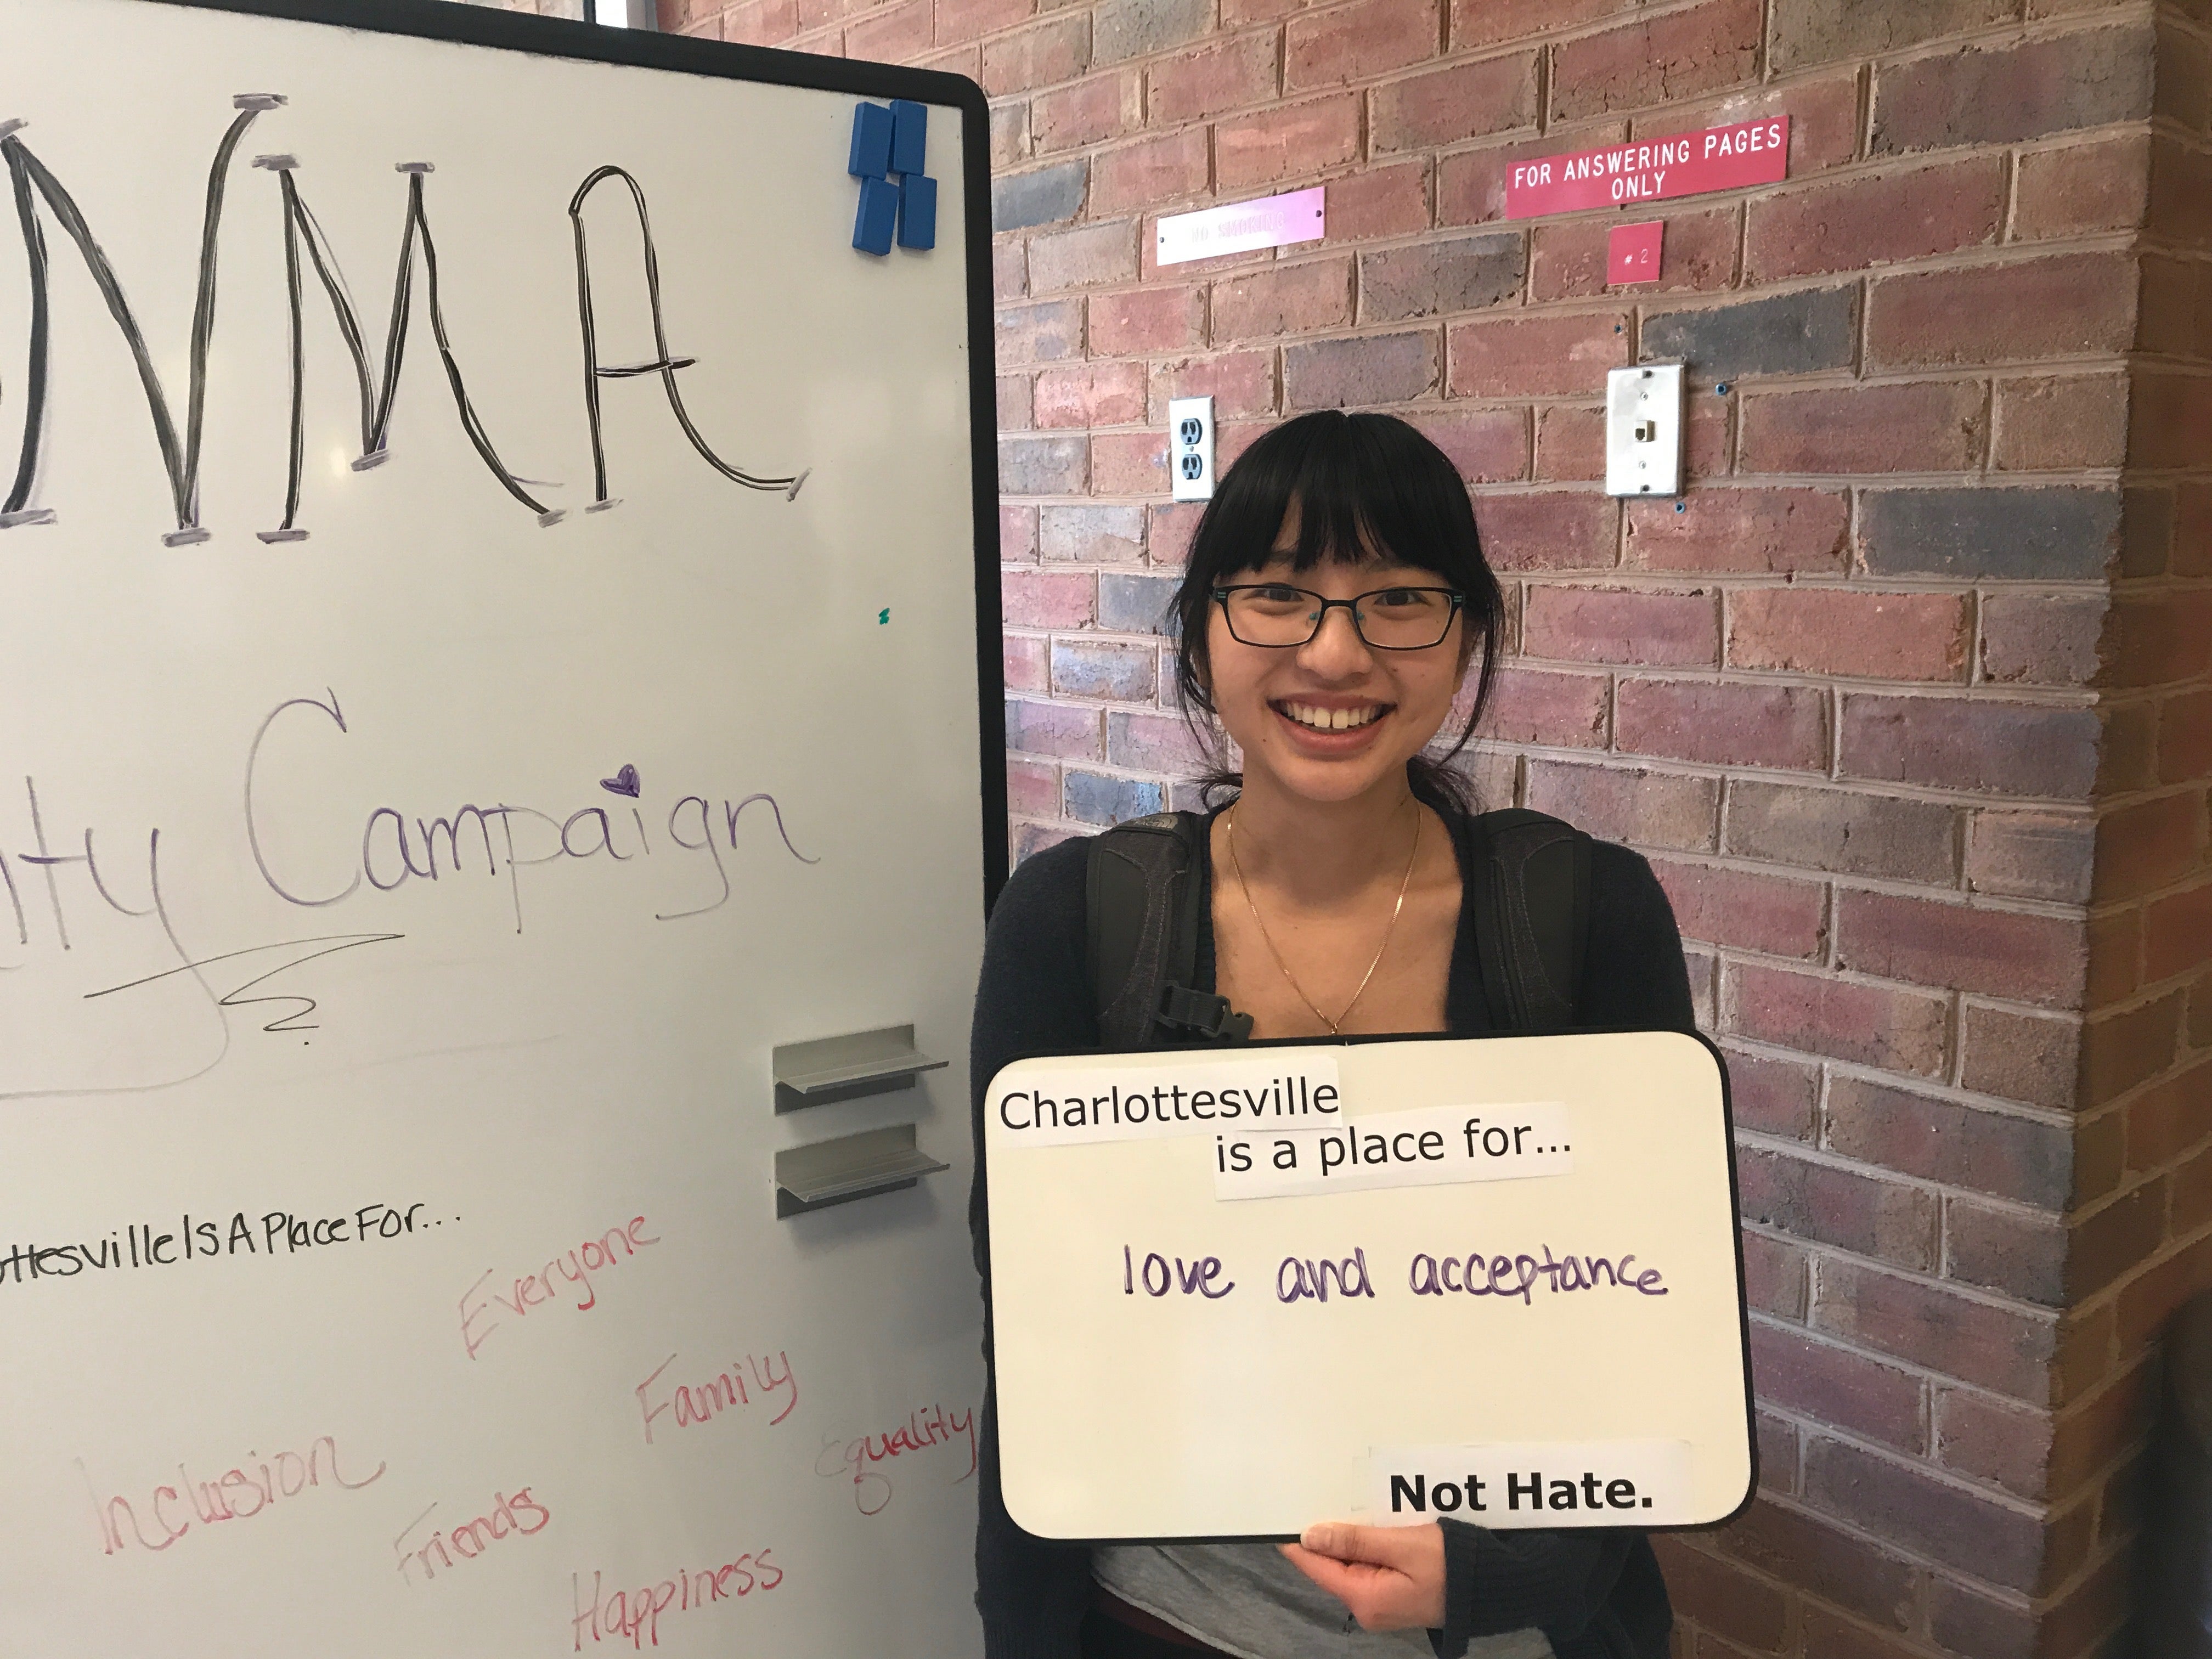 NMA
ity Campaign
ottesvilleIsAPlaceFor...
Everyone
Family
Equality
Inclusion
Friends
Happiness
NO SMOKING
FOR ANSWERING PAGES
ONLY
# 2
Charlottesville
is a place for...
love and acceptance
Not Hate.